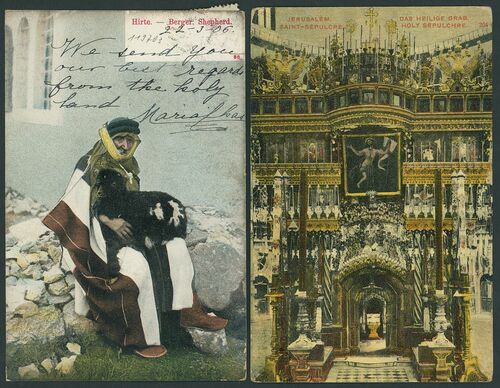 Hirte. — Berger. Shepherd.
22-3-06.
11370
We send you
our best regards
from the holy
land
JERUSALEM. DAS HEILIGE GRAB.
SAINT-SÉPULCRE. HOLY SEPULCHRE. 204